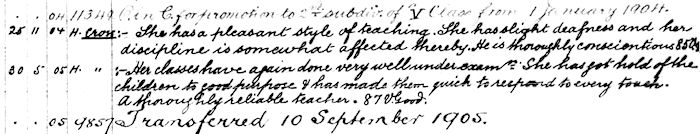 . . 04,11349 C in C. for promotion to 2nd subdiv. of V Class from 1 January 1904.
25 11 04 H. Cron:- She has a pleasant style of teaching. She has slight deafness and her
discipline is somewhat affected thereby. He is thoroughly conscientious 85
30 5 05 H. " :- Her classes have again done very well under examn. She has got hold of the
children to good purpose & has made them quick to respond to every touch.
A thoroughly reliable teacher. 87 V Good.
. . 05 9857 Transferred 10 September 1905.